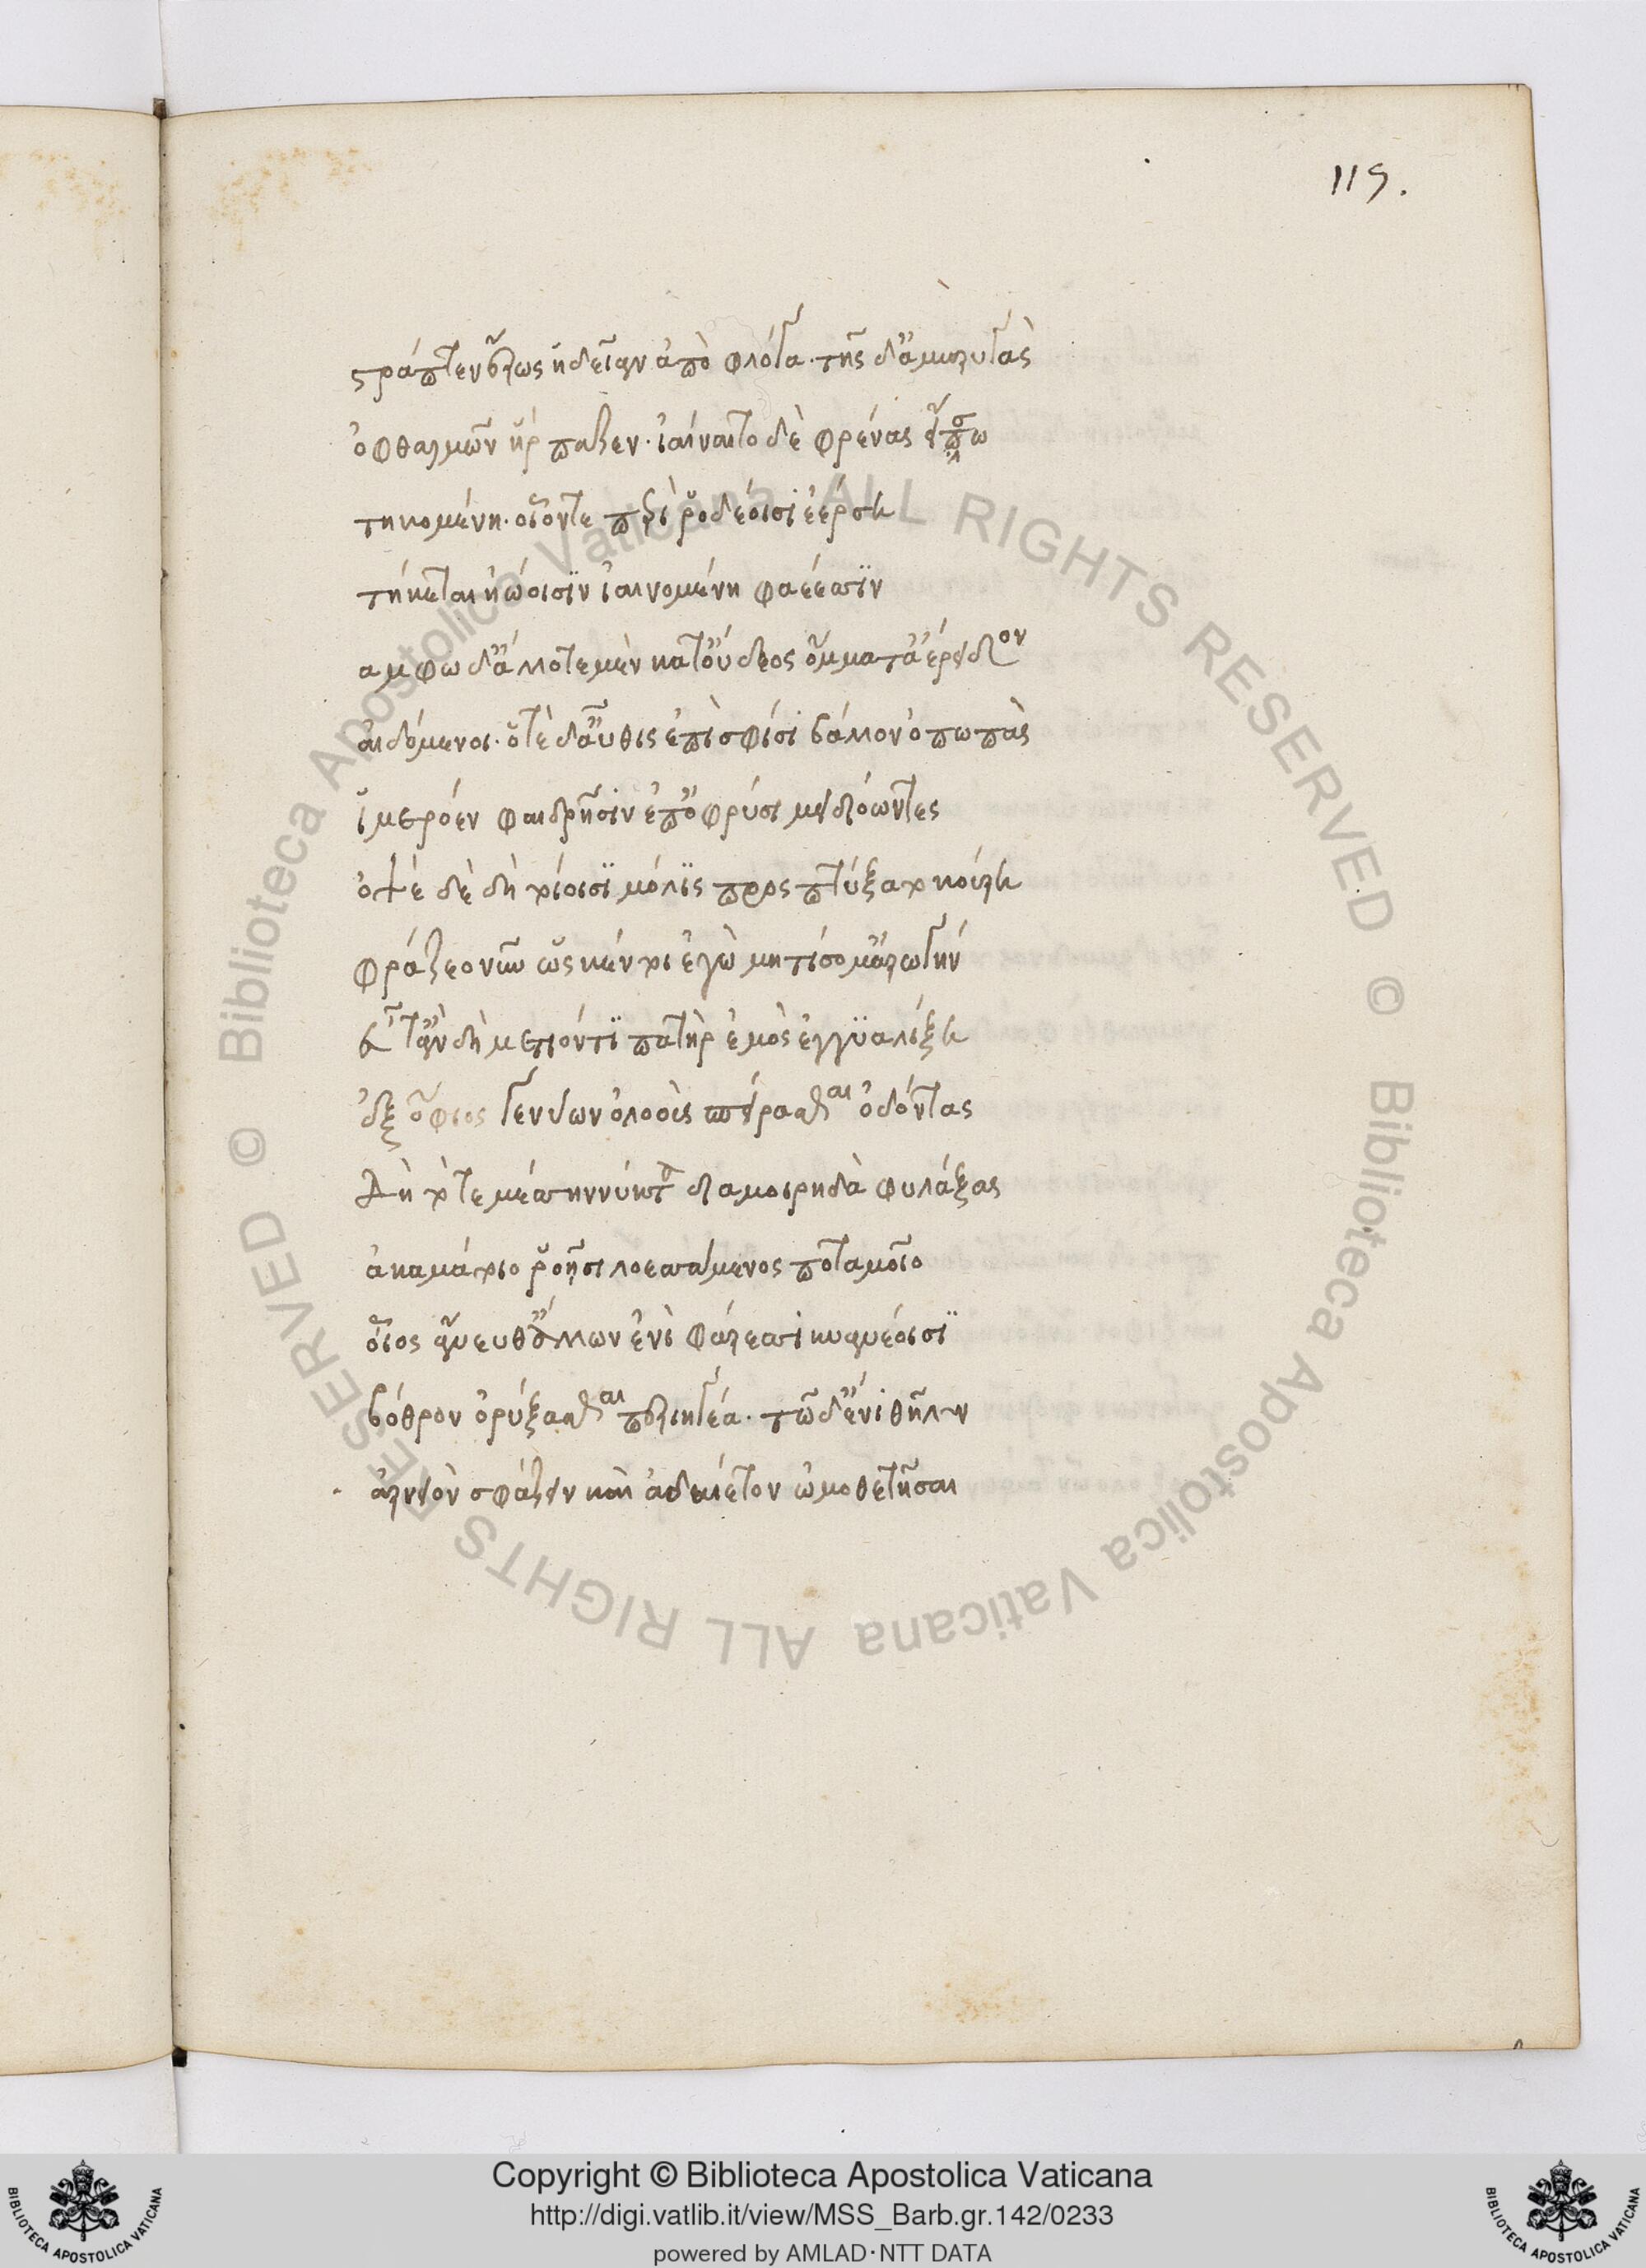 115.
στράπτεν ἔρως ἡδεῖαν ἀπὸ φλόγα· τῆς δ' ἀμαρυγὰς
ὀφθαλμῶν ἥρπαζεν· ἰαίνετο δὲ φρένας εἴσω
τηκομένη· οἷόν τε περὶ ῥοδέοισι ἐέρση
τήκεται ἠώοισιν ἰαινομένη φαέεσσιν
αμφω δ' ἄλλοτε μὲν κατ' οὔδεος ὄμματ' ἔρειδον
αἰδόμενοι· ὁτὲ δ' αὖθις ἐπὶ σφίσι βάλλον ὀπωπὰς
ἱμερόεν φαιδρῇσιν ἐπ' ὀφρύσι μειδιόωντες
ὀψὲ δὲ δὴ τοίοισι μόλις προσπτύξατο κούρη
φράζεο νῦν ὥς κέν τοι ἐγὼ μητίσομ' ἀρωγήν
εὖτ' ἂν δὴ μετιόντι πατὴρ ἐμὸς ἐγγυαλίξῃ
ἐξ ὄφιος γενύων ὀλοοὺς σπείρασθαι ὀδόντας
δὴ τότε μέσσην νύκτα διαμοιρηδὰ φυλάξας
ἀκαμάτοιο ῥοῇσι λοεσσάμενος ποταμοῖο
οἶος ἄνευθ' ἄλλων ἐνὶ φάρεσι κυανέοισι
βόθρον ὀρύξασθαι περιηγέα· τῷ δ' ἔνι θῆλυν
ἀρνειὸν σφάζειν καὶ ἀδαιετον ὠμοθετῆσαι
Biblioteca Apostolica Vaticana ALL RIGHTS RESERVED ©
Biblioteca Apostolica Vaticana ALL RIGHTS RESERVED ©
BIBLIOTECA APOSTOLICA VATICANA
Copyright © Biblioteca Apostolica Vaticana
http://digi.vatlib.it/view/MSS_Barb.gr.142/0233
powered by AMLAD·NTT DATA
BIBLIOTECA APOSTOLICA VATICANA